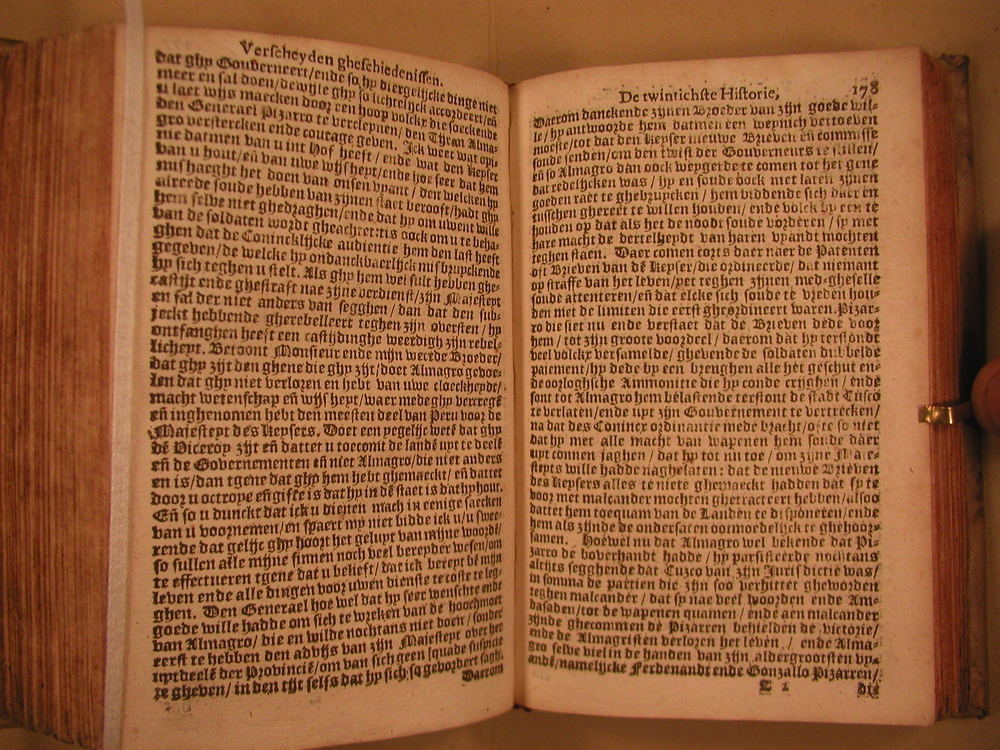 Verscheyden gheschiedenissen.
dat ghy Gouverneert/ende so hy diergelijcke dinge niet
meer en sal doen/dewijle ghy so lichtelijck accordeert/eñ
u laet wijs maecken door een hoop volckr die soeckende
den Generael Pizarro te vercleynen/den Tyran Alma-
gro verstercken ende courage geven. Ick weet wat opi-
nie datmen van u int Hof heeft/ende wat den Keyser
van u hout/eñ van uwe wijsheyt/ende hoe seer dat hem
mishaeght het doen van onsen vyant/den welcken hy
alreede soude hebben van zijnen staet berooft/hadt ghy
hem selve niet ghedraghen/ende dat hy om uwent wille
van de soldaten wordt gheacht:tis oock om u te beha-
ghen dat de Coninckliicke audientie hem den last heeft
gegeven/de welcke hy ondanckbaerlijck misbruyckende
hy sich teghen u stelt. Als ghy hem wel sult hebben ghe-
castijt ende ghestraft nae zijne verdienst/zijn Majesteyt
en sal der niet anders van segghen/dan dat den sub-
jeckt hebbende gherebelleert teghen zijn oversten/hy
ontfanghen heeft een castijdinghe weerdigh zijn rebel-
licheyt. Betoont Monsieur ende mijn weerde Broeder/
dat ghy zijt den ghene die ghy zijt/doet Almagro gevoe-
len dat ghy niet verloren en hebt van uwe cloeckheydt/
macht wetenschap eñ wijsheyt/waer mede ghy verregē
eñ inghenomen hebt den meesten deel van Peru voor de
Majesteyt des Keysers. Doet een yegelijc wetē dat ghy
dē Viceroy zijt eñ datter u toecomt de landē uyt te deelē
eñ de Governementen eñ niet Almagro/die niet anders
en is/dan tgene dat ghy hem hebt ghemaeckt/eñ dattet
door u octroye eñ gifte is dat hy in dē staet is dat hy hout.
Eñ so u dunckt dat ick u dienen mach in eenige saecken
van u voornemen/en spaert my niet bidde ick u/u swee-
rende dat gelijc ghy hoort het geluyt van mijne woordē/
so sullen alle mijne sinnen noch veel bereyder wesen/om
te effectueren tgene dat u belieft/dat ick bereyt bē mijn
leven ende alle dingen voor uwen dienste te coste te leg-
ghen. Den Generael hoe wel dat hy seer wenschte ende
goede wille hadde om sich te wreken van de hoochmoet
van Almagro/die en wilde nochtans niet doen/sonder
eerst te hebben den advijs van zijn Majesteyt over het
uytdeelē der Provinciē/om van sich geen quade suspicie
te gheven/in den tijt selfs dat hy sich so gevordert sagh.
Daerom
De twintichste Historie, 178
Daerom danckende zijnen Broeder van zijn goede wil-
le/hy antwoorde hem datmen een weynich vertoeven
moeste/tot dat den Keyser nieuwe Brieven eñ commisse
soude senden/om den twist der Gouverneurs te stillen/
eñ so Almagro dan oock weygerde te comen tot het gene
dat redelijcken was/hy en soude oock niet laten zijnen
goeden raet te ghebruycken/hem biddende sich daer en
tusschen ghereet te willen houden/ende volck by een te
houden op dat als het de noodt soude vorderen/sy met
hare macht de dertelheydt van haren vyandt mochten
teghen staen. Daer comen corts daer naer de Patenten
oft Brieven van dē Keyser/die ordineerde/dat niemant
op straffe van het leven/yet teghen zijnen med-gheselle
soude attenteren/eñ dat elcke sich soude te vreden hou-
den met de limiten die eerst gheordineert waren.Pizar-
ro die siet nu ende verstaet dat de Brieven dede voor
hem/tot zijn groote voordeel/daerom dat hy terstondt
veel volckr versamelde/ghevende de soldaten dubbelde
payement/hy dede by een brenghen alle het geschut en-
de oorloghsche Ammonitie die hy conde crijghen/ende
sont tot Almagro hem belastende terstont de stadt Cusco
te verlaten/ende uyt zijn Gouvernement te vertrecken/
na dat des Conincx ordinantie mede bracht/ofte so niet
dat hy met alle macht van wapenen hem soude daer
uyt connen jaghen/dat hy tot nu toe/om zijne Maje-
steyts wille hadde naghelaten: dat de nieuwe Brieven
des Keysers alles te niete ghemaeckt hadden dat sy te
voor met malcander mochten ghetracteert hebben/alsoo
dattet hem toequam van de Landen te disponeren/ende
hem als zijnde de ondersaten ootmoedelijck te ghehoor-
samen. Hoewel nu dat Almagro wel bekende dat Pi-
zarro de boverhandt hadde/hy parsisteerde nochtans
altijts segghende dat Cuzco van zijn Jurisdictie was/
in somma de partien die zijn soo verhittet gheworden
teghen malcander/dat sy nae veel woorden ende Am-
basaden/tot de wapenen quamen/ende aen malcander
zijnde ghecommen dē Pizarren behielden de victorie/
ende de Almagristen verloren het leven/ende Alma-
gro selve viel in de handen van zijn aldergrootsten vy-
andē/namelijcke Ferdenandt ende Gonzallo Pizarren/
die